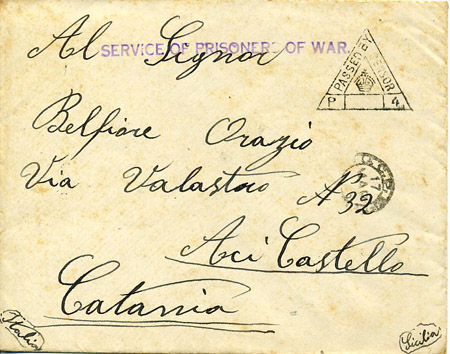 Al Signor
SERVICE OF PRISONERS OF WAR.
PASSED BY CENSOR
P 4
Belfiore Orazio
Via Valastro No 32
17
Aci Castello
Catania
Italia
Sicilia